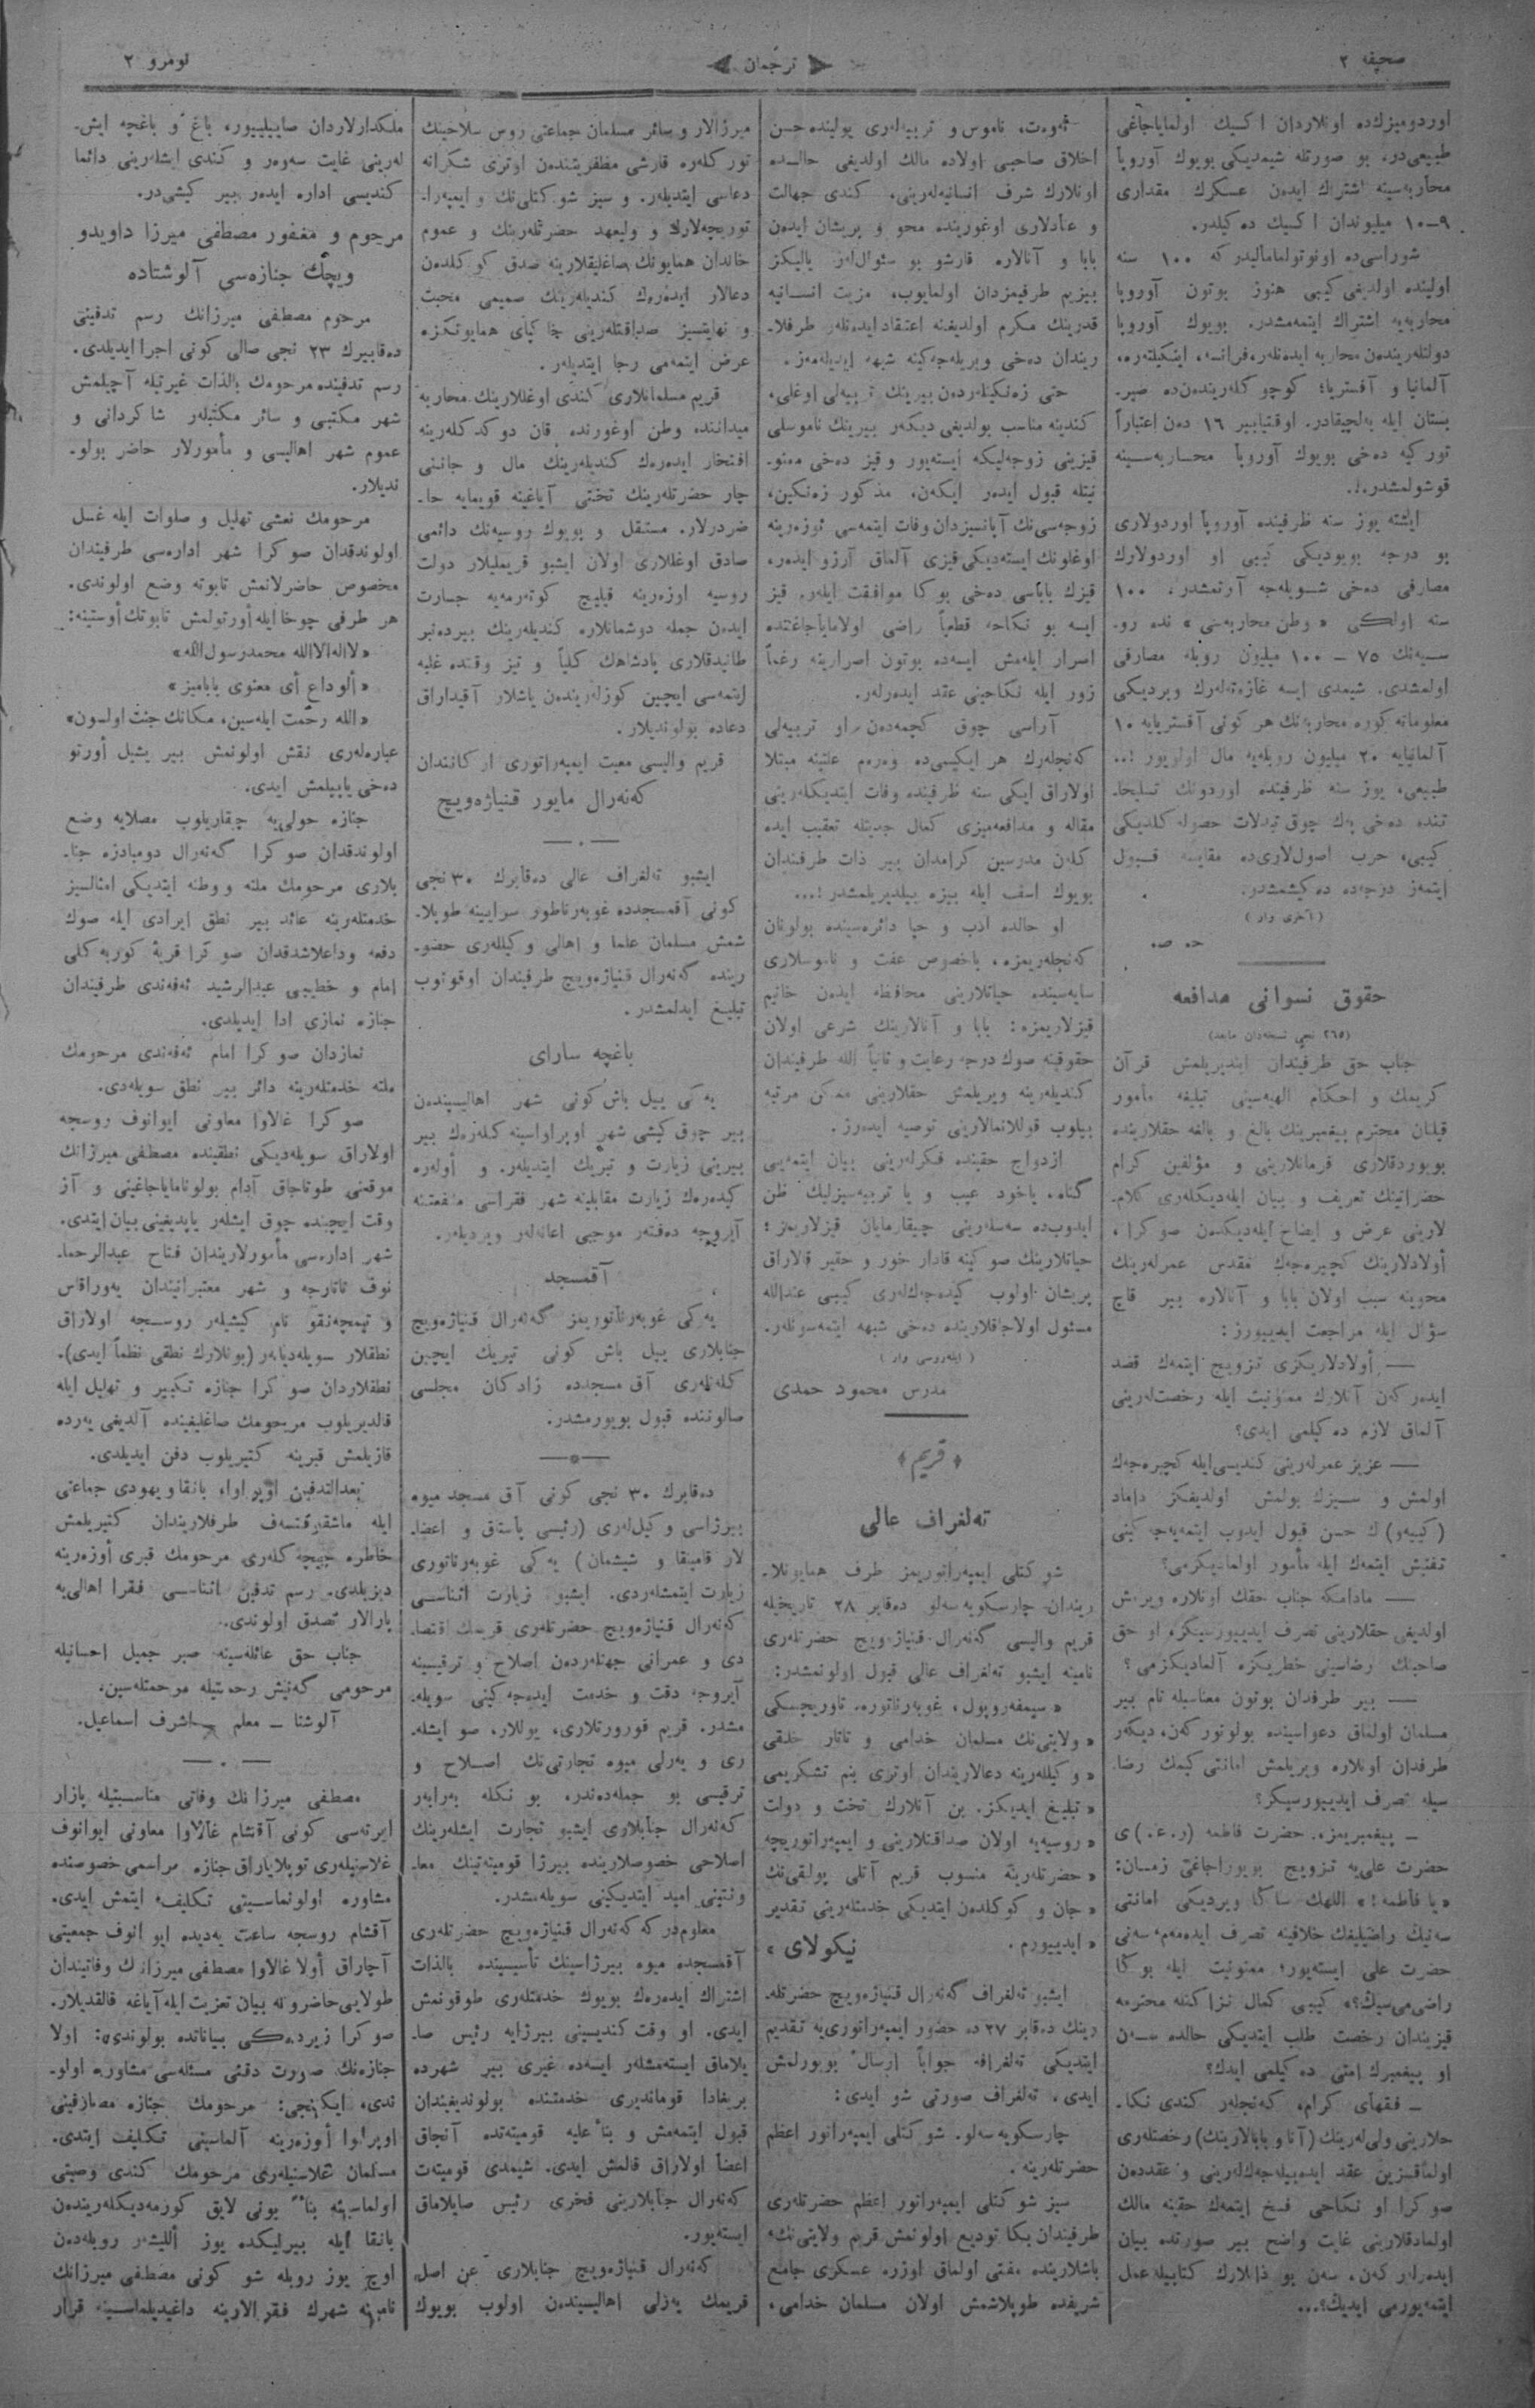 صحیفه ۲
ترجمان
نومرو ۲
اوردومیزکده اونلاردان اکسیك اولمایاجاغی
طبیعی‌در، بو صورتله شیمدیکی بویوك آوروپا
محاربه‌سینه اشتراك ایدن عسکرك مقداری
۹-۱۰ میلیوندان اکسیك ده کیلدر.
شوراسی‌ده اونوتولمامالیدر که ۱۰۰ سنه
اولینده اولدیغی کیبی هنوز بوتون آوروپا
محاربه‌یه اشتراك ایتمه‌مشدر. بویوك آوروپا
دولتلریندن محاربه ایدنلر، فرانسه، اینکیلتره،
آلمانیا و آفستریا؛ کوچوکلریندن‌ده صیر-
بستان ایله به‌لچیقادر. اوقتیابیر ۱۶ دن اعتباراً
تورکیه ده‌خی بویوك آوروپا محاربه‌سینه
قوشولمشدر.
ایشته یوز سنه ظرفینده آوروپا اوردولاری
بو درجه بویودیکی کیبی او اوردولارك
مصارفی ده‌خی شویله‌جه آرتمشدر. ۱۰۰
سنه اولکی «وطن محاربه‌سی» نده رو-
سیه‌نك ۷۵ - ۱۰۰ میلیون روبله مصارفی
اولمشدی. شیمدی ایسه غازه‌ته‌لرك ویردیکی
معلوماته کوره محاربه‌نك هر کونی آفستریایه ۱۰
آلمانیایه ۲۰ میلیون روبله‌یه مال اولویور!..
طبیعی، یوز سنه ظرفینده اوردونك تسلیحا-
تنده ده‌خی پك چوق تبدلات حصوله کلدیکی
کیبی، حرب اصول‌لاری‌ده مقایسه قبول
ایتمه‌ز درجه‌ده ده‌کیشمشدر.
(آخری وار)
ح. ص.
حقوق نسوانی مدافعه
(۲۶۵ نجی نسخه‌دان مابعد)
جناب حق طرفندان ایندیریلمش قرآن
کریمك و احکام الهیه‌سینی تبلیغه مأمور
قیلنان محترم پیغمبرینك بالغ و بالغه حقلارینده
بویوردقلاری فرمانلارینی و مؤلفین کرام
حضراتینك تعریف و بیان ایله‌دیکلری کلام-
لارینی عرض و ایضاح ایله‌دیکدن صوکرا،
أولادلارینك کچیره‌جك مقدس عمرلرینك
محوینه سبب اولان بابا و آنالاره بیر قاچ
سؤال ایله مراجعت ایدییورز:
— أولادلاریکزی تزویج ایتمه‌ك قصد
ایدرکن آنلارك ممنونیت ایله رخصت‌لرینی
آلماق لازم ده‌کیلمی ایدی؟
— عزیز عمرلرینی کندیسی‌ایله کچیره‌جك
اولمش و سیزك بولمش اولدیغکز داماد
(کییه‌و)ك حسن قبول ایدوب ایتمه‌یه‌جه‌کینی
تفتیش ایتمه‌ك ایله مأمور اولمادیکزمی؟
— مادامکه جناب حقك اونلاره ویرمش
اولدیغی حقلارینی تصرف ایدییورسیکز، او حق
صاحبنك رضاسینی خطریکزه آلمادیکزمی؟
— بیر طرفدان بوتون معناسیله تام بیر
مسلمان اولماق دعواسینده بولونورکن، دیکر
طرفدان اونلاره ویریلمش امانتی کیمك رضا-
سیله تصرف ایدییورسیکز؟
— پیغمبریمز، حضرت فاطمه (ر.ع.)ی
حضرت علی‌یه تزویج بویوراجاغی زمان:
«یا فاطمه!» اللهك ساکا ویردیکی امانتی
سه‌نیك راضیلیغك خلافینه تصرف ایده‌مم، سه‌نی
حضرت علی ایسته‌یور؛ ممنونیت ایله بوکا
راضی‌می‌سیك؟» کیبی کمال نزاکتله محترمه
قیزیندان رخصت طلب ایتدیکی حالده سن
او پیغمبرك امتی ده‌کیلمی ایدك؟
— فقهای کرام، که‌نجلر کندی نکا-
حلارینی ولی‌لرینك (آنا و بابالارینك) رخصتلری
اولماقسزین عقد ایده‌بیله‌جه‌کلرینی و عقددن
صوکرا او نکاحی فسخ ایتمه‌ك حقینه مالك
اولمادقلارینی غایت واضح بیر صورتده بیان
ایده‌رلرکن، سن بو ذاتلارك کتابیله عمل
ایتمه‌یورمی ایدیك؟...
ثروت، ناموس و تربیه‌لری یولینده حسن
اخلاق صاحبی اولاده مالك اولدیغی حالده
اونلارك شرف انسانیه‌لرینی، کندی جهالت
و عادلاری اوغورینده محو و پریشان ایدن
بابا و آنالاره قارشو بو سئوال‌لر یالیکز
بیزیم طرفیمزدان اولمایوب، مزیت انسانیه
قدرینك مکرم اولدیغنه اعتقاد ایدنلر طرفلا-
ریندان ده‌خی ویریله‌جه‌کینه شبهه ایدیله‌مز.
حتی زنکینلردن بیرینك تربیه‌لی اوغلی،
کندینه مناسب بولدیغی دیکر بیرینك ناموسلی
قیزینی زوجه‌لیکه ایسته‌یور و قیز ده‌خی ممنو-
نیتله قبول ایدر ایکن، مذکور زنکین،
زوجه‌سی‌نك آپانسیزدان وفات ایتمه‌سی ئوزه‌رینه
اوغلونك ایسته‌دیکی قیزی آلماق آرزو ایدر،
قیزك باباسی ده‌خی بوکا موافقت ایلر. قیز
ایسه بو نکاحه قطعیاً راضی اولامایاجاغنده
اصرار ایله‌مش ایسه‌ده بوتون اصرارینه رغماً
زور ایله نکاحینی عقد ایده‌رلر.
آراسی چوق کچمه‌دن، او تربیه‌لی
که‌نجلرك هر ایکیسی‌ده وه‌ره‌م علتینه مبتلا
اولاراق ایکی سنه ظرفینده وفات ایتدیکلرینی
مقاله و مدافعه‌میزی کمال جدیتله تعقیب ایده
کلن مدرسین کرامدان بیر ذات طرفندان
بویوك اسف ایله بیزه بیلدیریلمشدر!...
او حالده ادب و حیا دائره‌سینده بولونان
که‌نجلریمزه، باخصوص عفت و ناموسلاری
سایه‌سینده حیاتلارینی محافظه ایدن خانیم
قیزلاریمزه: بابا و آنالارینك شرعی اولان
حقوقینه صوك درجه رعایت و ثانیاً الله طرفیندان
کندیلرینه ویریلمش حقلارینی ممکن مرتبه
بیلوب قوللانمالارینی توصیه ایده‌رز.
ازدواج حقینده فکرلرینی بیان ایتمه‌یی
گناه، یاخود عیب و یا تربیه‌سیزلیك ظن
ایدوب‌ده سه‌سلرینی چیقارمایان قیزلاریمز؛
حیاتلارینك صوکینه قادار خور و حقیر قالاراق
پریشان اولوب کیده‌جه‌کلری کیبی عندالله
مسئول اولاجاقلارینده ده‌خی شبهه ایتمه‌سونلر.
(ایلروسی وار)
مدرس محمود حمدی
﴿قریم﴾
ته‌لغراف عالی
شوکتلی ایمپه‌راتوریمز طرف همایونلا-
ریندان چارسکویه سه‌لو ده‌قابر ۲۸ تاریخیله
قریم والیسی گه‌نه‌رال قنیاژه‌ویچ حضرتلری
نامینه ایشبو ته‌لغراف عالی قبول اولونمشدر:
«سیمفه‌روپول، غوبه‌رناتوره. تاوریچسکی
«ولایتی‌نك مسلمان خدامی و تاتار خلقی
«وکیللرینه دعالاریندان اوتری بنم تشکریمی
«تبلیغ ایدیکز. بن آنلارك تخت و دولت
«روسیه‌یه اولان صداقتلارینی و ایمپه‌راتوریچه
«حضرتلرینه منسوب قریم آتلی پولقی‌نك
«جان و کوکلدن ایتدیکی خدمتلرینی تقدیر
«ایدییورم.
نیکولای»
ایشبو ته‌لغراف گه‌نه‌رال قنیاژه‌ویچ حضرتله-
رینك ده‌قابر ۲۷ ده حضور ایمپه‌راتوری‌یه تقدیم
ایتدیکی ته‌لغرافه جواباً ارسال بویورلمش
ایدی. ته‌لغراف صورتی شو ایدی:
چارسکویه سه‌لو. شوکتلی ایمپه‌راتور اعظم
حضرتلرینه.
سیز شوکتلی ایمپه‌راتور اعظم حضرتلری
طرفیندان بکا تودیع اولونمش قریم ولایتی‌نك
باشلارینده مفتی اولماق اوزره عسکری جامع
شریفده طوپلاشمش اولان مسلمان خدامی،
میرزالار و سائر مسلمان جماعتی روس سلاحینك
تورکلره قارشی مظفریتندن اوتری شکرانه
دعاسی ایتدیلر. و سیز شوکتلی‌نك و ایمپه‌را-
توریچه‌لارك و ولیعهد حضرتلرینك و عموم
خاندان همایونك صاغلیقلارینه صدق کوکلدن
دعالار ایدرك کندیلرینك صمیمی محبت
و نهایتسیز صداقتلرینی خاکپای همایونکزه
عرض ایتمه‌می رجا ایتدیلر.
قریم مسلمانلاری کندی اوغللارینك محاربه
میداننده وطن اوغورنده قان دوکدکلرینه
افتخار ایدرك کندیلرینك مال و جانینی
چار حضرتلرینك تختی آیاغینه قویمایه حا-
ضردرلار. مستقل و بویوك روسیه‌نك دائمی
صادق اوغللاری اولان ایشبو قریملیلار دولت
روسیه اوزه‌رینه قیلیچ کوته‌رمه‌یه جسارت
ایدن جمله دوشمانلاره کندیلرینك بیردنبر
طانیدقلاری پادشاهك کلیاً و تیز وقتده غلبه
ایتمه‌سی ایچین کوزلریندن یاشلار آقیداراق
دعاده بولوندیلار.
قریم والیسی معیت ایمپه‌راتوری ارکانندان
که‌نه‌رال مایور قنیاژه‌ویچ
ایشبو ته‌لغراف عالی ده‌قابرك ۳۰ نجی
کونی آقمسجدده غوبه‌رناطور سراینه طوپلا-
شمش مسلمان علما و اهالی وکیللری حضو-
رینده گه‌نه‌رال قنیاژه‌ویچ طرفیندان اوقونوب
تبلیغ ایدلمشدر.
باغچه سارای
یه‌کی ییل باش کونی شهر اهالیسیندن
بیر چوق کیشی شهر اوپراواسینه کله‌رك بیر
بیرینی زیارت و تبریك ایتدیلر. و أولره
کیده‌رك زیارت مقابلینه شهر فقراسی منفعتنه
آیروجه دفتر موجبی اعانه‌لر ویردیلر.
آقمسجد
یه‌کی غوبه‌رناتوریمز گه‌نه‌رال قنیاژه‌ویچ
جنابلاری ییل باش کونی تبریك ایچین
کلنلری آق مسجدده زادکان مجلسی
صالوننده قبول بویورمشدر.
ده‌قابرك ۳۰ نجی کونی آق مسجد میوه
بیرژاسی وکیل‌لری (رئیسی پاستاق و اعضا-
لار قامینقا و شیشمان) یه‌کی غوبه‌رناتوری
زیارت ایتمشلردی. ایشبو زیارت اثناسی
که‌نه‌رال قنیاژه‌ویچ حضرتلری قریمك اقتصا-
دی و عمرانی جهتلردن اصلاح و ترقیسینه
آیروجه دقت و خدمت ایده‌جه‌کینی سویله-
مشدر. قریم قورورتلاری، یوللار، صو ایشله-
ری و یه‌رلی میوه تجارتی‌نك اصلاح و
ترقیسی بو جمله‌دندر. بونکله برابر
که‌نه‌رال جنابلاری ایشبو تجارت ایشلرینك
اصلاحی خصوصلارینده بیرژا قومیته‌تینك معا-
ونتینی امید ایتدیکینی سویله‌مشدر.
معلوم‌در که که‌نه‌رال قنیاژه‌ویچ حضرتلری
آقمسجده میوه بیرژاسینك تأسیسینده بالذات
اشتراك ایده‌رك بویوك خدمتلری طوقونمش
ایدی. او وقت کندیسینی بیرژایه رئیس صا-
یلاماق ایسته‌مشلر ایسه‌ده غیری بیر شهرده
بریغادا قوماندیری خدمتنده بولوندیغیندان
قبول ایتمه‌مش و بناً علیه قومیته‌تده آنجاق
اعضا اولاراق قالمش ایدی. شیمدی قومیته‌ت
که‌نه‌رال جنابلارینی فخری رئیس صایلاماق
ایسته‌یور.
که‌نه‌رال قنیاژه‌ویچ جنابلاری عن اصل
قریمك یه‌رلی اهالیسیندن اولوب بویوك
ملکدارلاردان صاییلییور، باغ و باغچه ایش-
لرینی غایت سه‌وه‌ر و کندی ایشلرینی دائما
کندیسی اداره ایدر بیر کیشی‌در.
مرحوم و مغفور مصطفی میرزا داویدو
ویچك جنازه‌سی آلوشتاده
مرحوم مصطفی میرزانك رسم تدفینی
ده‌قابیرك ۲۳ نجی صالی کونی اجرا ایدیلدی.
رسم تدفینده مرحومك بالذات غیرتیله آچیلمش
شهر مکتبی و سائر مکتبلر شاکردانی و
عموم شهر اهالیسی و مأمورلار حاضر بولو-
ندیلار.
مرحومك نعشی تهلیل و صلوات ایله غسل
اولوندقدان صوکرا شهر اداره‌سی طرفیندان
مخصوص حاضرلانمش تابوته وضع اولوندی.
هر طرفی چوخا ایله أورتولمش تابوتك أوستینه:
«لااله الاالله محمد رسول الله»
«ألوداع أی معنوی بابامیز»
«الله رحمت ایله‌سین، مکانك جنت اولسون»
عباره‌لری نقش اولونمش بیر یشیل أورتو
ده‌خی یاپیلمش ایدی.
جنازه حولی‌یه چیقاریلوب مصلایه وضع
اولوندقدان صوکرا گه‌نه‌رال دومبادزه جنا-
بلاری مرحومك ملته و وطنه ایتدیکی امثالسیز
خدمتلرینه عائد بیر نطق ایرادی ایله صوك
دفعه وداعلاشدقدان صوکرا قریهٔ کوربه‌کلی
امام و خطیبی عبدالرشید ئه‌فه‌ندی طرفیندان
جنازه نمازی ادا ایدیلدی.
نمازدان صوکرا امام ئه‌فه‌ندی مرحومك
ملته خدمتلرینه دائر بیر نطق سویله‌دی.
صوکرا غالاوا معاونی ایوانوف روسجه
اولاراق سویله‌دیکی نطقینده مصطفی میرزانك
موقعنی طوتاجاق آدام بولونامایاجاغینی و آز
وقت ایچینده چوق ایشلر یاپدیغینی بیان ایتدی.
شهر اداره‌سی مأمورلاریندان فتاح عبدالرحما-
نوف تاتارجه و شهر معتبرانیندان یه‌وراقاس
و تیمچه‌نقو نام کیشیلر روسجه اولاراق
نطقلار سویله‌دیلر (بونلارك نطقی نظماً ایدی).
نطقلاردان صوکرا جنازه تکبیر و تهلیل ایله
قالدیریلوب مرحومك صاغلیغینده آلدیغی یه‌رده
قازیلمش قبرینه کتیریلوب دفن ایدیلدی.
بعدالتدفین اوپراوا، بانقا و یهودی جماعتی
ایله طرفلاریندان کتیریلمش
خاطره چیچه‌کلری مرحومك قبری أوزه‌رینه
دیزیلدی. رسم تدفین اثناسی فقرا اهالی‌یه
پارالار تصدق اولوندی.
جناب حق عائله‌سینه صبر جمیل احسانیله
مرحومی گه‌نیش رحمتیله مرحمتله‌سین.
آلوشتا — معلم اشرف اسماعیل.
مصطفی میرزانك وفاتی مناسبتیله پازار
ایرته‌سی کونی آقشام غالاوا معاونی ایوانوف
غلاسنیلری توپلایاراق جنازه مراسمی خصوصنده
مشاوره اولونماسینی تکلیف ایتمش ایدی.
آقشام روسجه ساعت یدیده ایوانوف جمعیتی
آچاراق أولا غالاوا مصطفی میرزانك وفاتیندان
طولایی حاضرونه بیان تعزیت ایله آیاغه قالقدیلار.
صوکرا زیرده‌کی بیاناتده بولوندی: اولا
جنازه‌نك صورت دفنی مسئله‌سی مشاوره اولو-
ندی، ایکنجی: مرحومك جنازه مصارفینی
اوپراوا أوزه‌رینه آلماسینی تکلیف ایتدی.
مسلمان غلاسنیلری مرحومك کندی وصیتی
اولماسینه بناً بونی لایق کورمه‌دیکلریندن
بانقا ایله بیرلیکده یوز أللیشر روبله‌دن
اوچ یوز روبله شو کونی مصطفی میرزانك
نامینه شهرك فقرالارینه داغیدیلماسینه قرار